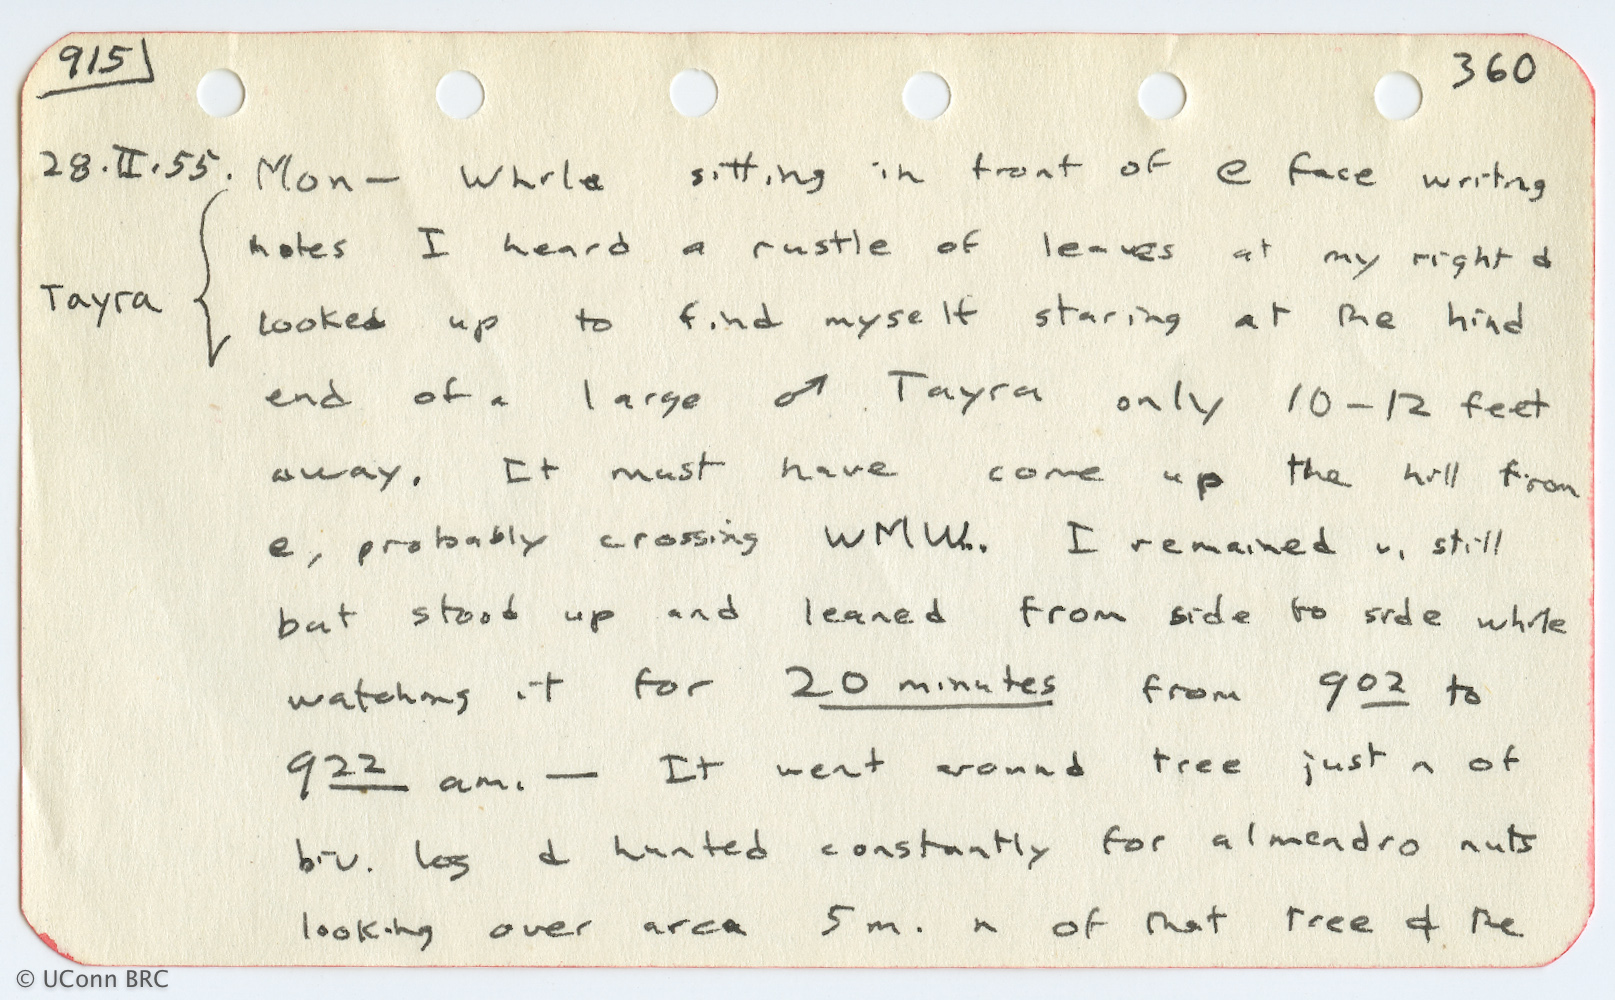 915
360
28.II.55. Mon — While sitting in front of e face writing
notes I heard a rustle of leaves at my right &
Tayra
looked up to find myself staring at the hind
end of a large ♂ Tayra only 10-12 feet
away. It must have come up the hill from
e, probably crossing WMW. I remained v. still
but stood up and leaned from side to side while
watching it for 20 minutes from 902 to
922 am. — It went around tree just n of
biv. log & hunted constantly for almendro nuts
looking over area 5 m. n of that tree & the
© UConn BRC